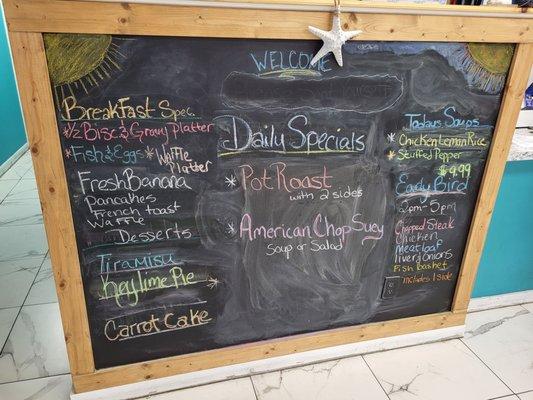 WELCOME
BreakFast Spec.
1/2 Bisc & Gravy Platter
Fish & Eggs
Waffle Platter
Fresh Banana
Pancakes
French toast
Waffle
Desserts
Tiramisu
Key lime Pie
Carrot Cake
Daily Specials
Pot Roast
with 2 sides
American Chop Suey
Soup or Salad
Todays Soups
Chicken Lemon Rice
Stuffed Pepper
Early Bird
2pm-5pm
$9.99
Chopped Steak
Chicken
Meatloaf
liver & onions
Fish basket
Includes 1 side